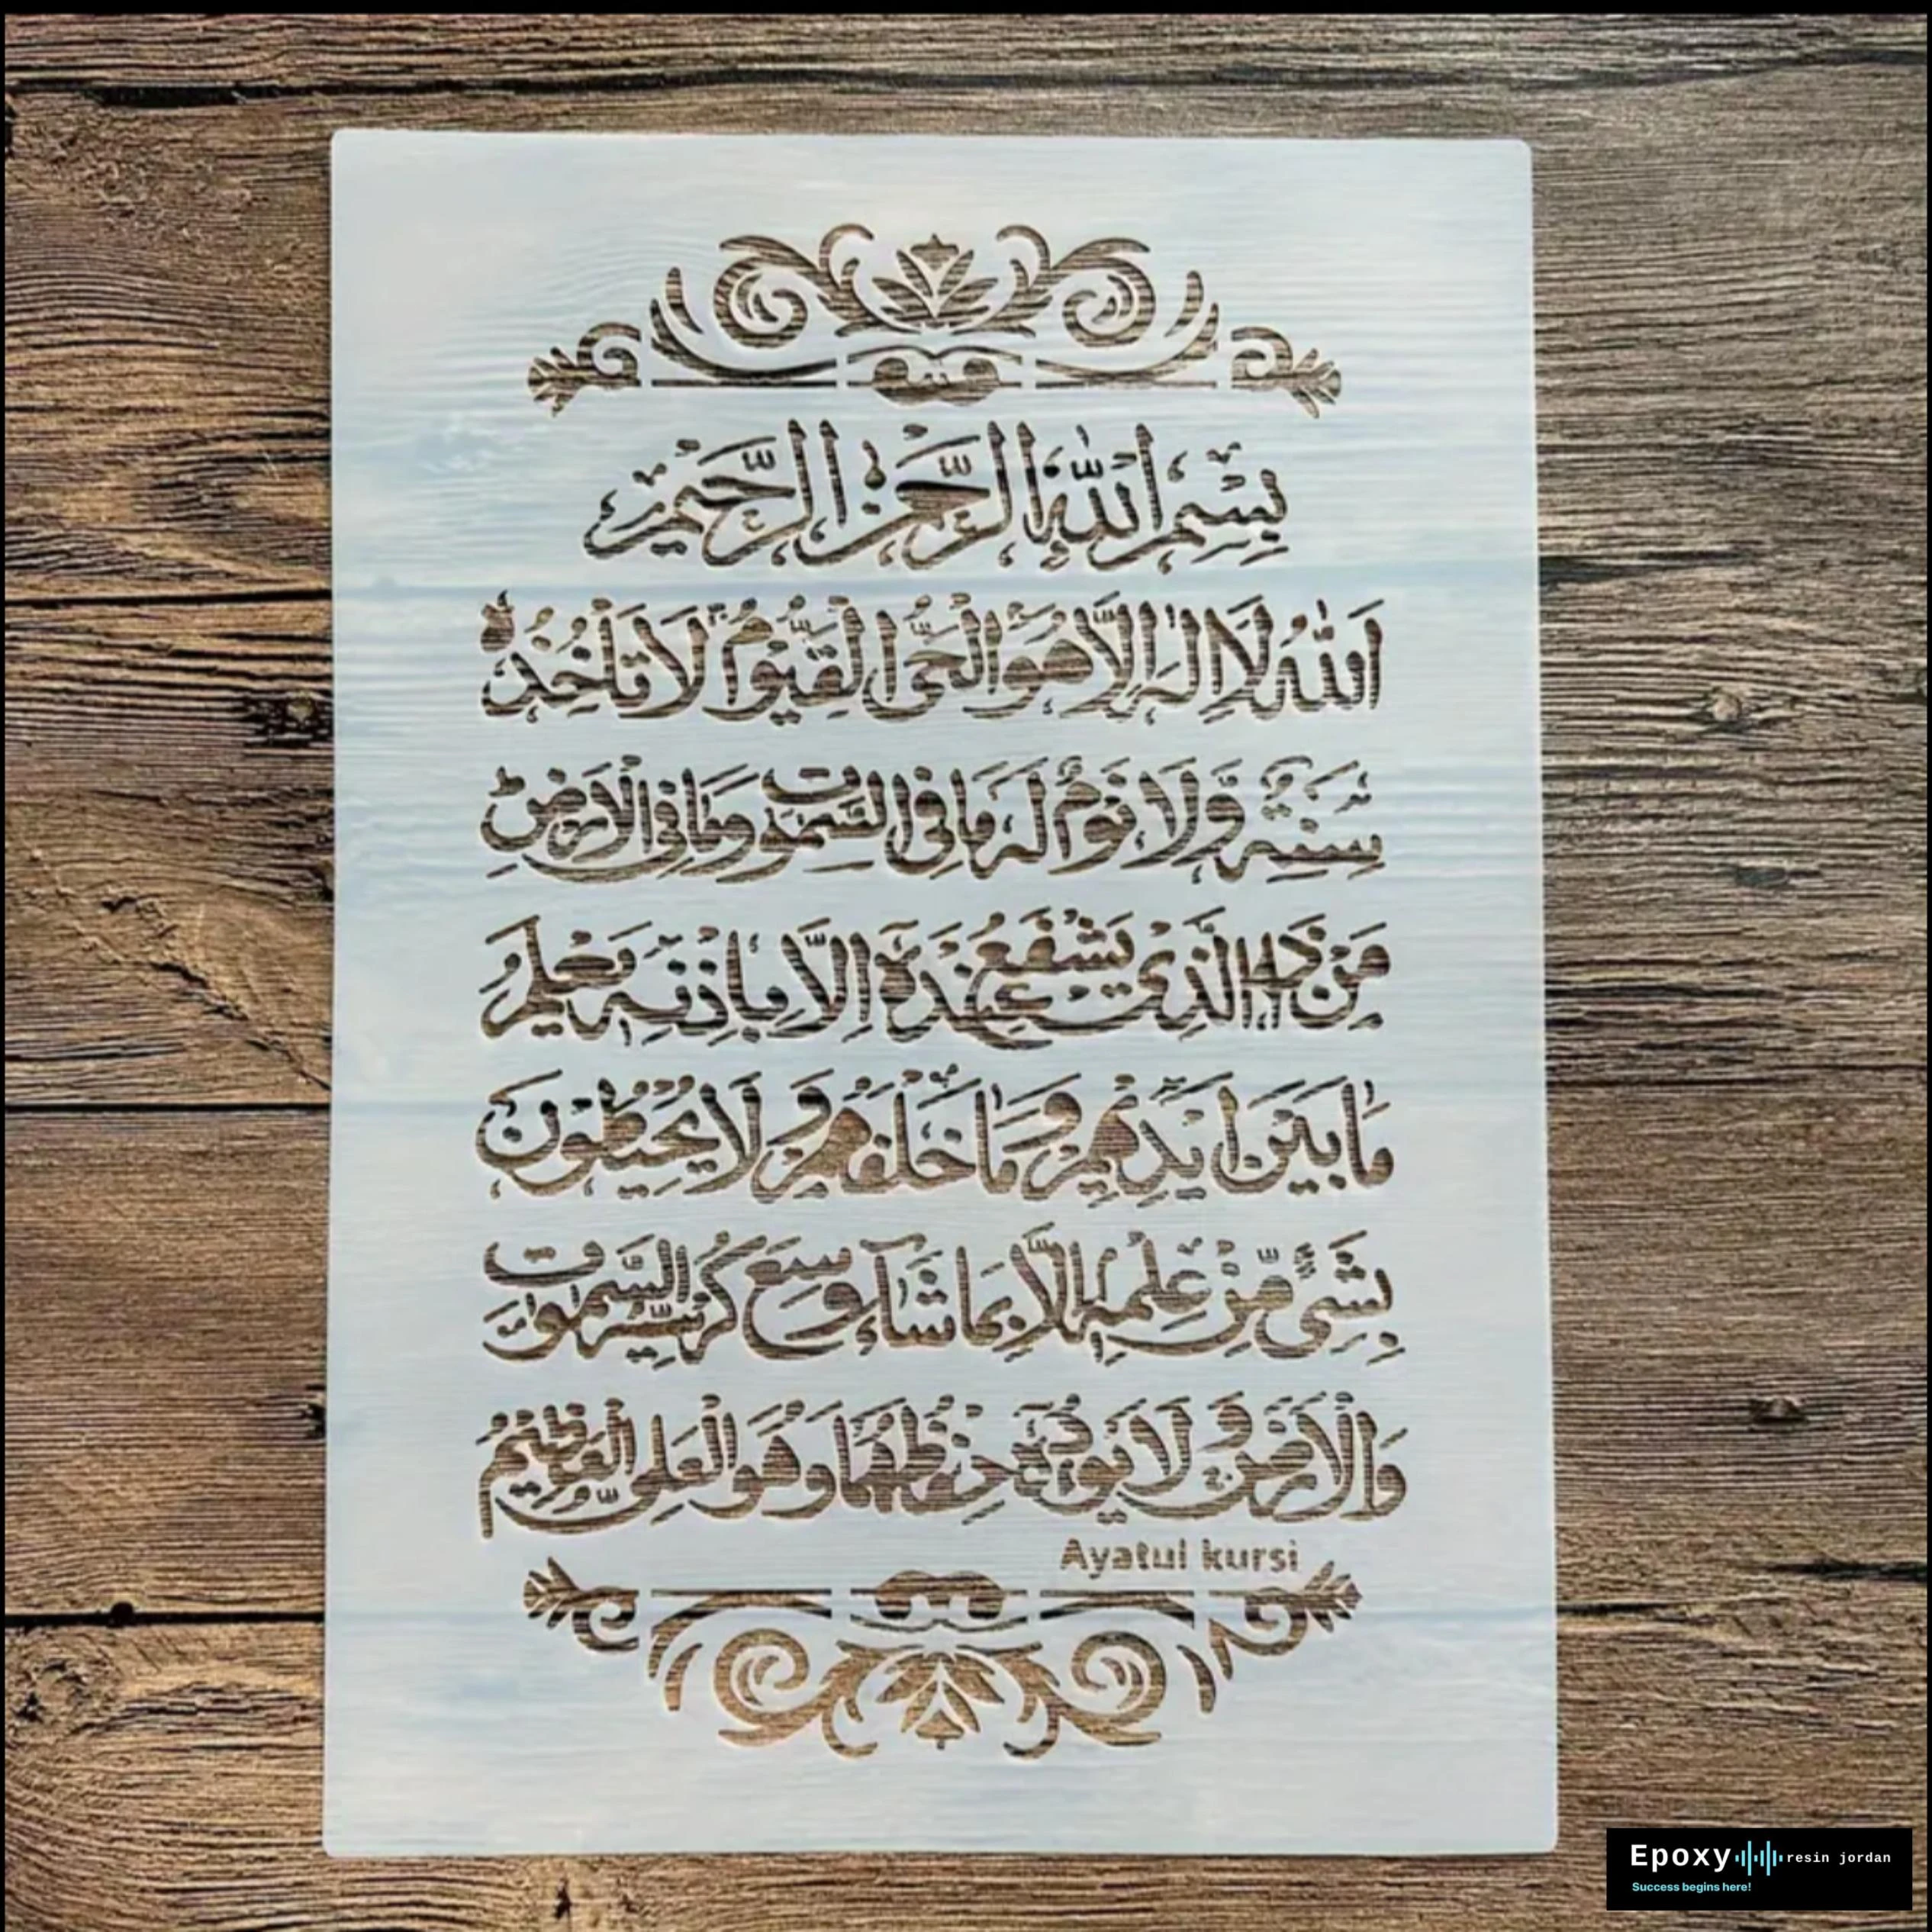 بِسْمِ اللهِ الرَّحْمٰنِ الرَّحِيْمِ
اَللهُ لَا اِلٰهَ اِلَّا هُوَ الْحَیُّ الْقَیُّوْمُ لَا تَاْخُذُهٗ
سِنَةٌ وَّلَا نَوْمٌ لَهٗ مَا فِی السَّمٰوٰتِ وَمَا فِی الْاَرْضِ
مَنْ ذَا الَّذِیْ یَشْفَعُ عِنْدَهٗۤ اِلَّا بِاِذْنِهٖ یَعْلَمُ
مَا بَیْنَ اَیْدِیْهِمْ وَمَا خَلْفَهُمْ وَلَا یُحِیْطُوْنَ
بِشَیْءٍ مِّنْ عِلْمِهٖۤ اِلَّا بِمَا شَآءَ وَسِعَ كُرْسِیُّهُ السَّمٰوٰتِ
وَالْاَرْضَ وَلَا یَـُٔوْدُهٗ حِفْظُهُمَا وَهُوَ الْعَلِیُّ الْعَظِیْمُ
Ayatul kursi
Epoxy resin jordan
Success begins here!